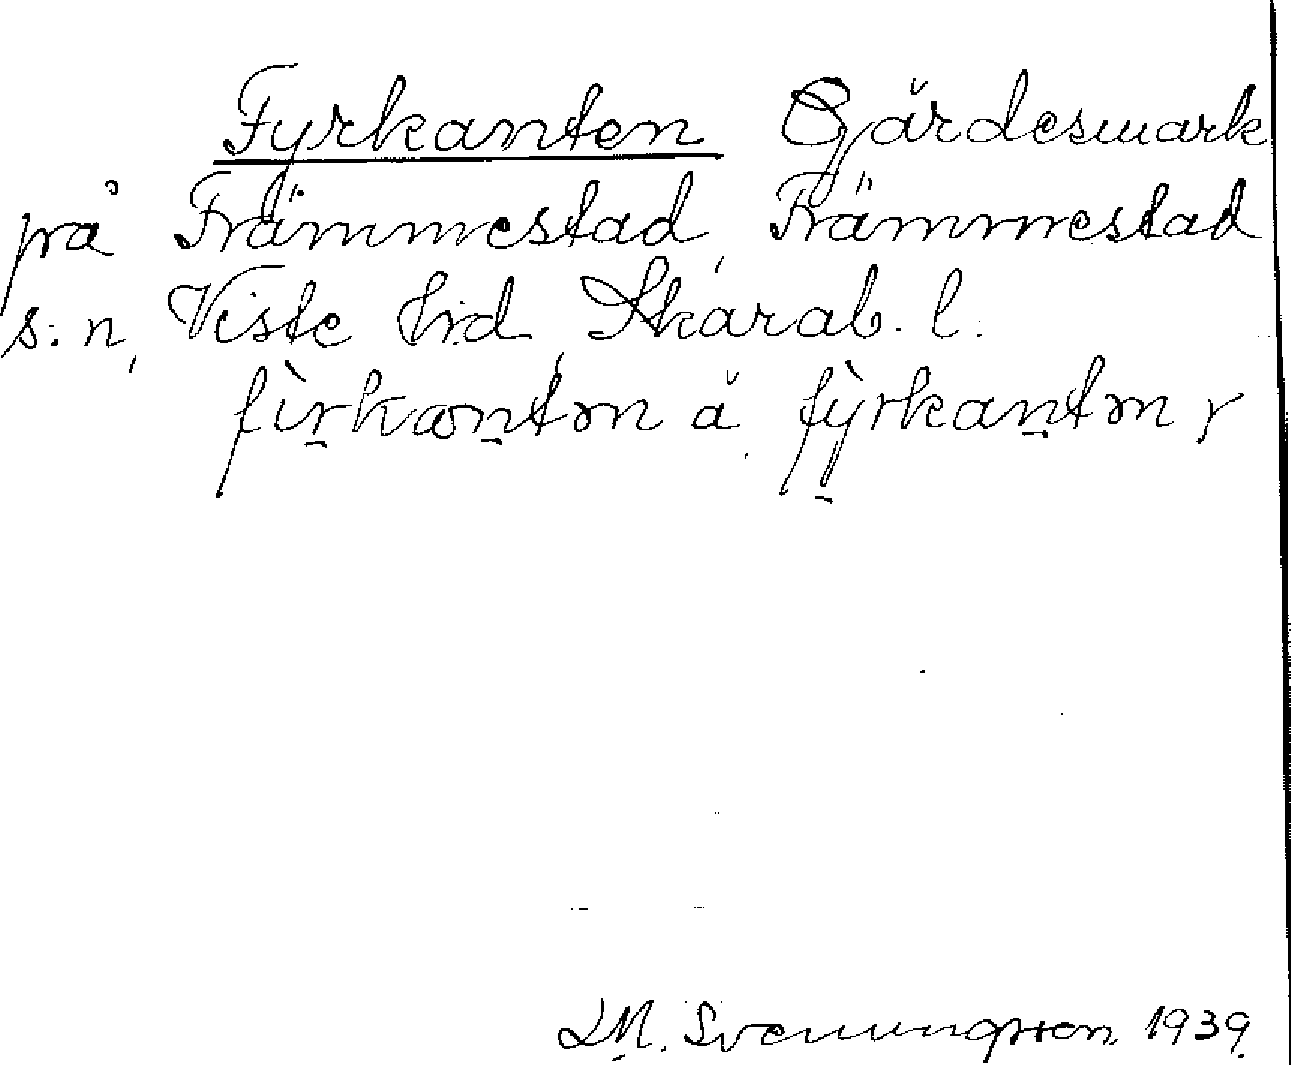 Fyrkanten Gärdesmark
på Främmestad, Främmestad
s:n, Viste hd, Skarab. l.
fìrkantən å fỳrkantən r
L M. Svenungsson 1939.